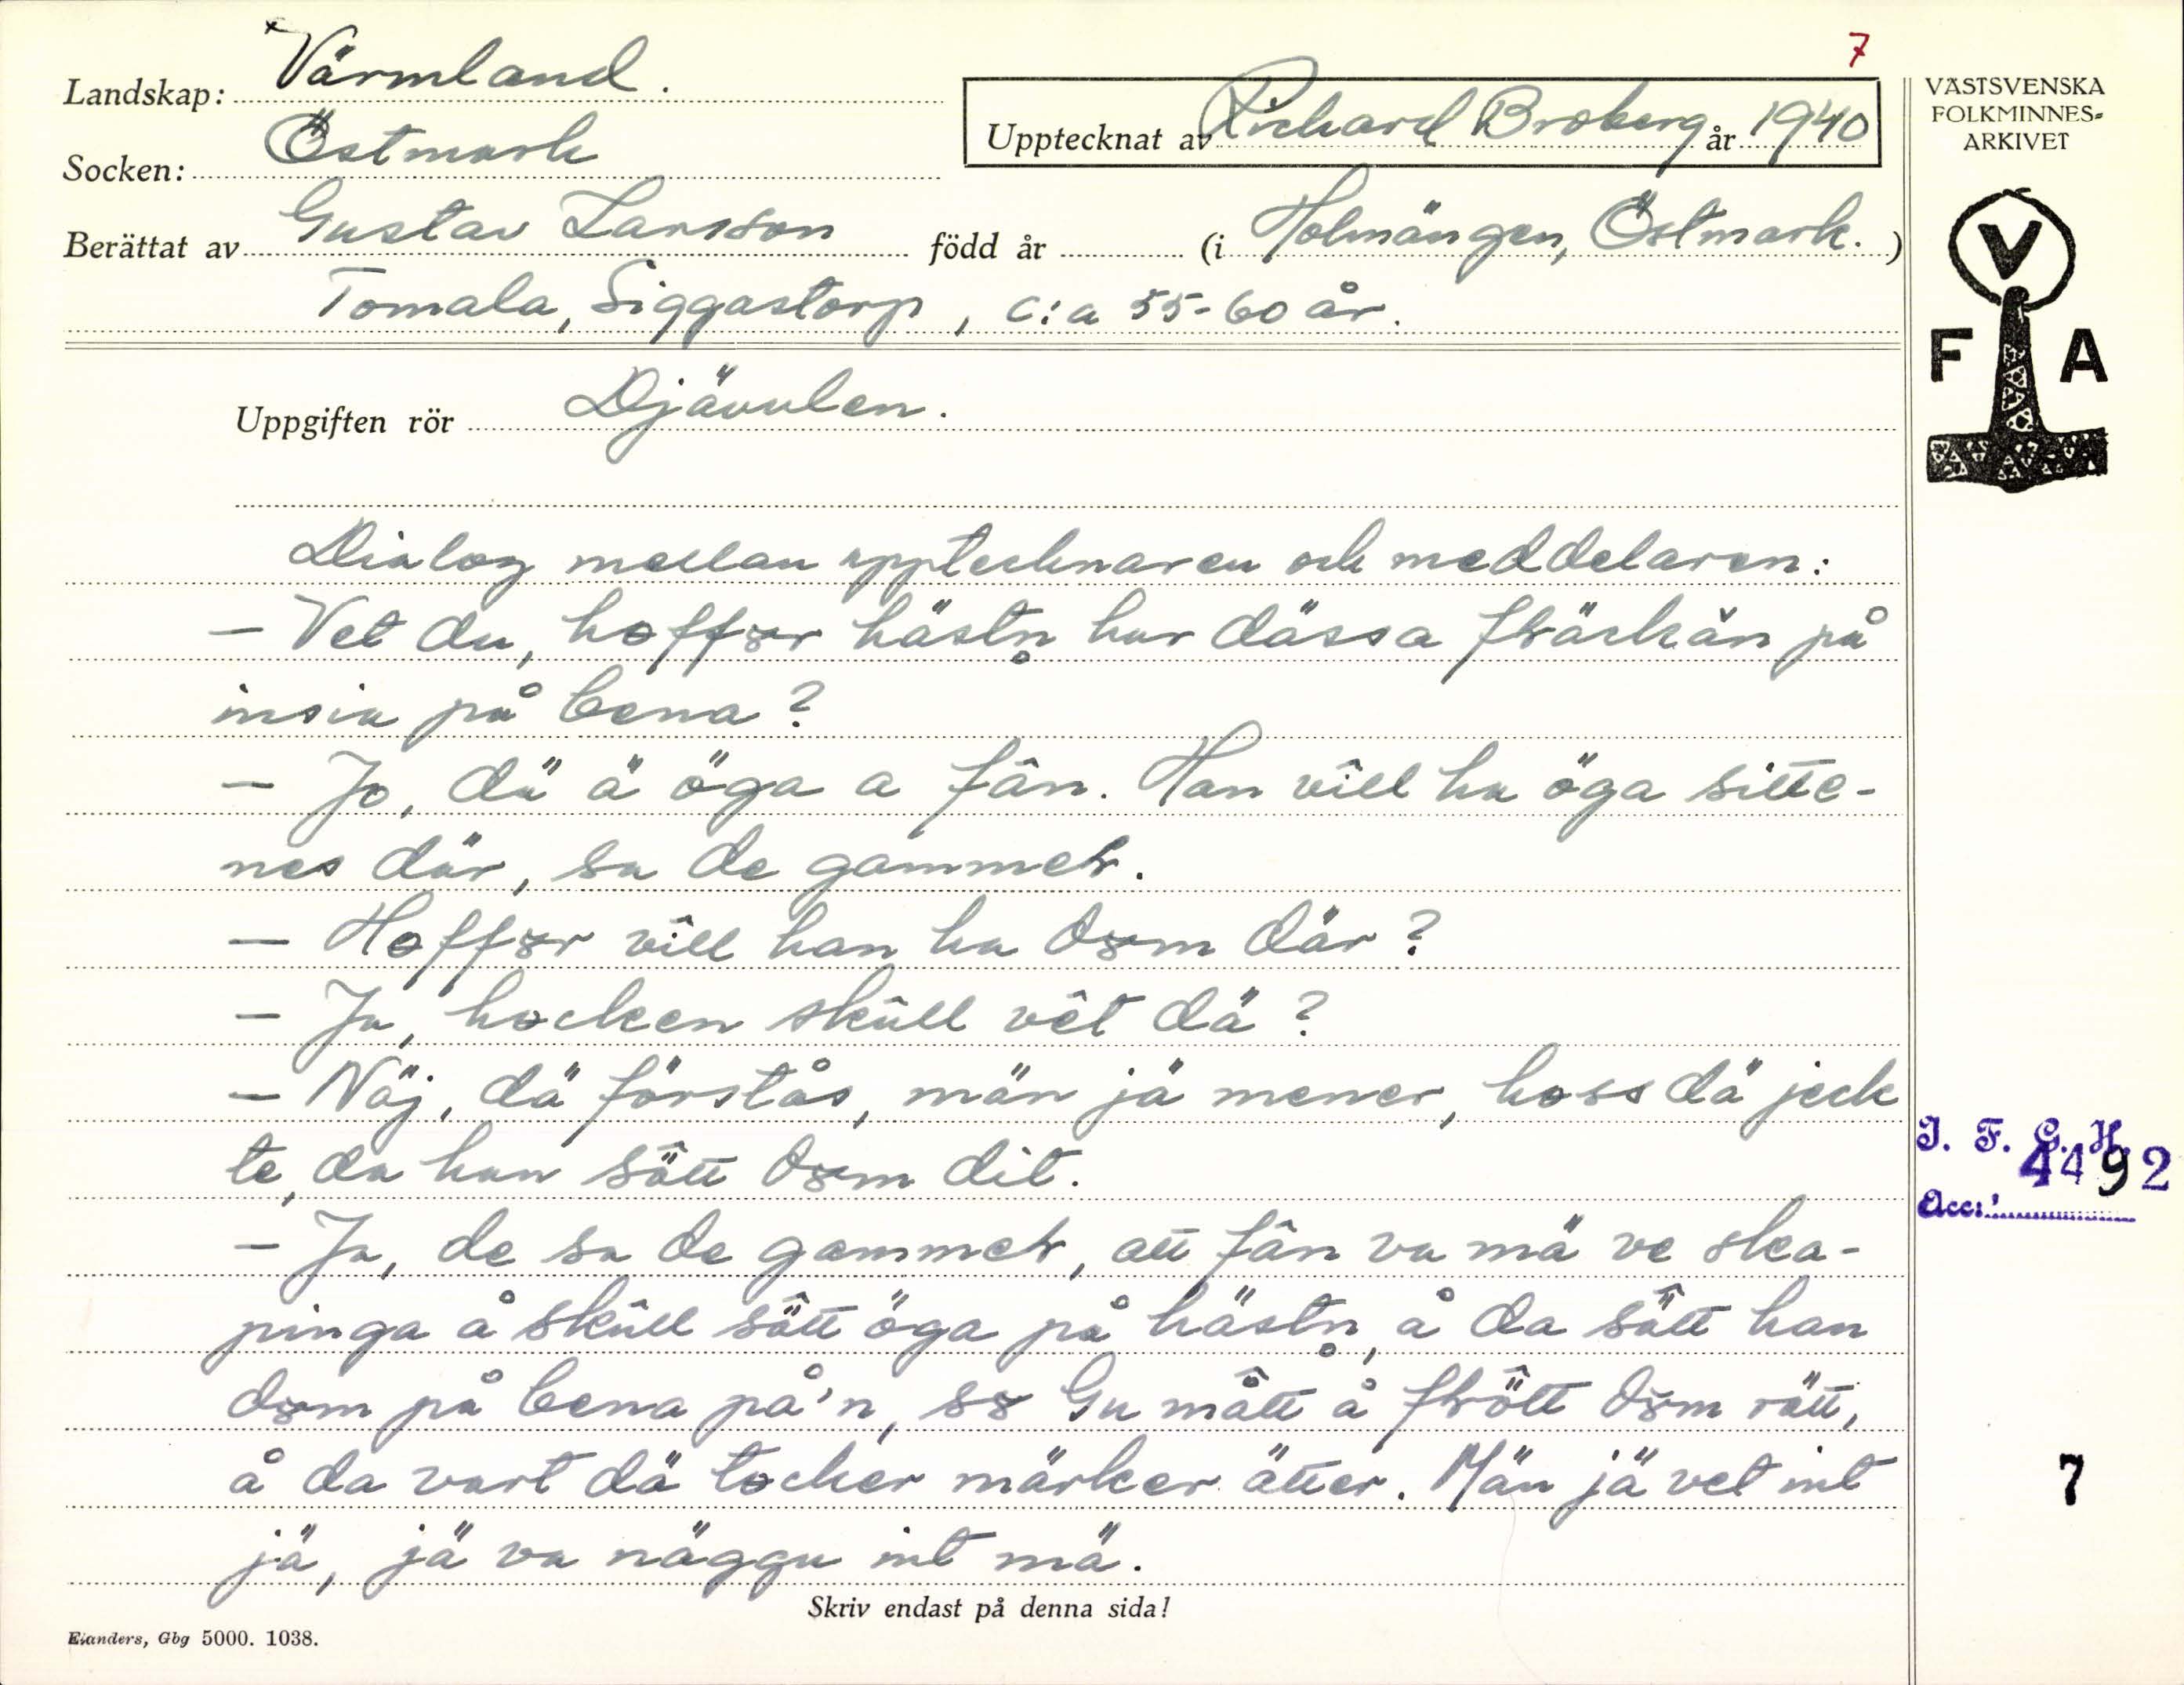 7
Landskap: Värmland.
Socken: Östmark
Upptecknat av Richard Broberg år 1940
Berättat av Gustav Larsson född år (i Holmängen, Östmark.)
Tomala, Siggastorp, c:a 55-60 år.
VÄSTSVENSKA
FOLKMINNES-
ARKIVET
V
F A
Uppgiften rör Djävulen.
Dialog mellan upptecknaren och meddelaren:
– Vet du, hoffer hästn̥ har dässa på
insia på bena?
– Jo, dä ä öga a fân. Han vill ha öga sitte-
nes där, sa de gammeƚ.
– Hoffer vill han ha dom där?
– Ja, hocken skûll vêt dä?
– Näj, dä förstås, män jä mener, hoss dä jeck
te, da han sätt dom dit.
– Ja, de sa de gammeƚ, att fân va mä ve ska-
pinga å skûll sätt öga på hästn̥, å da sätt han
dom på bena på'n, so Gu mått å fƚött dom rätt,
å da vart dä tocker märker ätter. Män jä vet int
jä, jä va näggu int mä.
I. F. G. H.
4492
Acc:
7
Skriv endast på denna sida!
Elanders, Gbg 5000. 1038.